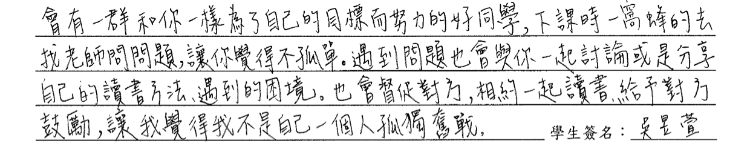 會有一群和你一樣為了自己的目標而努力的好同學，下課時一窩蜂的去
找老師問問題，讓你覺得不孤單。遇到問題也會與你一起討論或是分享
自己的讀書方法、遇到的困境。也會督促對方，相約一起讀書，給予對方
鼓勵，讓我覺得我不是自己一個人孤獨奮戰。 學生簽名：吳昱萱